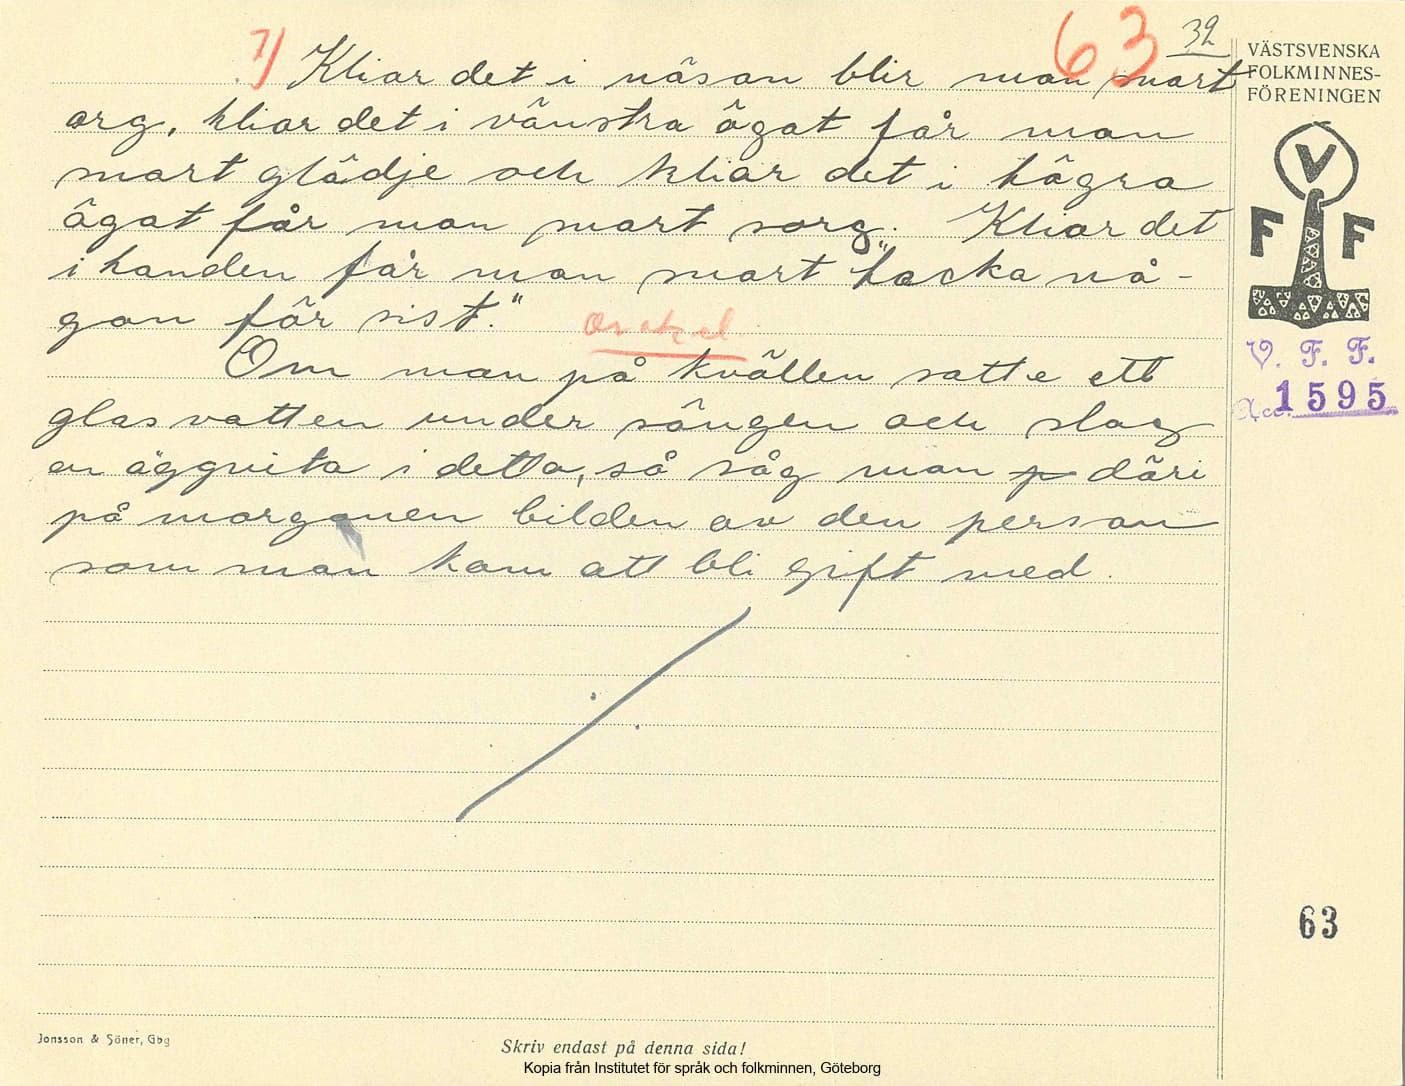 7) Kliar det i näsan blir man snart
arg, kliar det i vänstra ögat får man
snart glädje och kliar det i högra
ögat får man snart sorg. Kliar det
i handen får man snart "tacka nå-
gon för sist."
orakel
Om man på kvällen satte ett
glas vatten under sängen och slog
en äggvita i detta, så såg man däri
på morgonen bilden av den person
som man kom att bli gift med.
63
32
VÄSTSVENSKA
FOLKMINNES-
FÖRENINGEN
V
F F
V. F. F.
Acc. 1595
63
Jonsson & Söner, Gbg
Skriv endast på denna sida!
Kopia från Institutet för språk och folkminnen, Göteborg